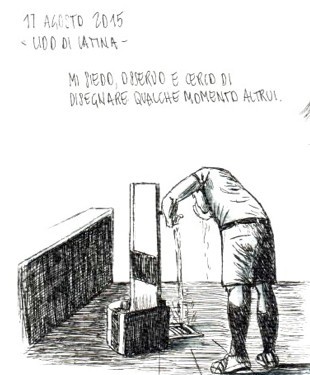 17 AGOSTO 2015
- LIDO DI LATINA -
MI SIEDO, OSSERVO E CERCO DI
DISEGNARE QUALCHE MOMENTO ALTRUI.